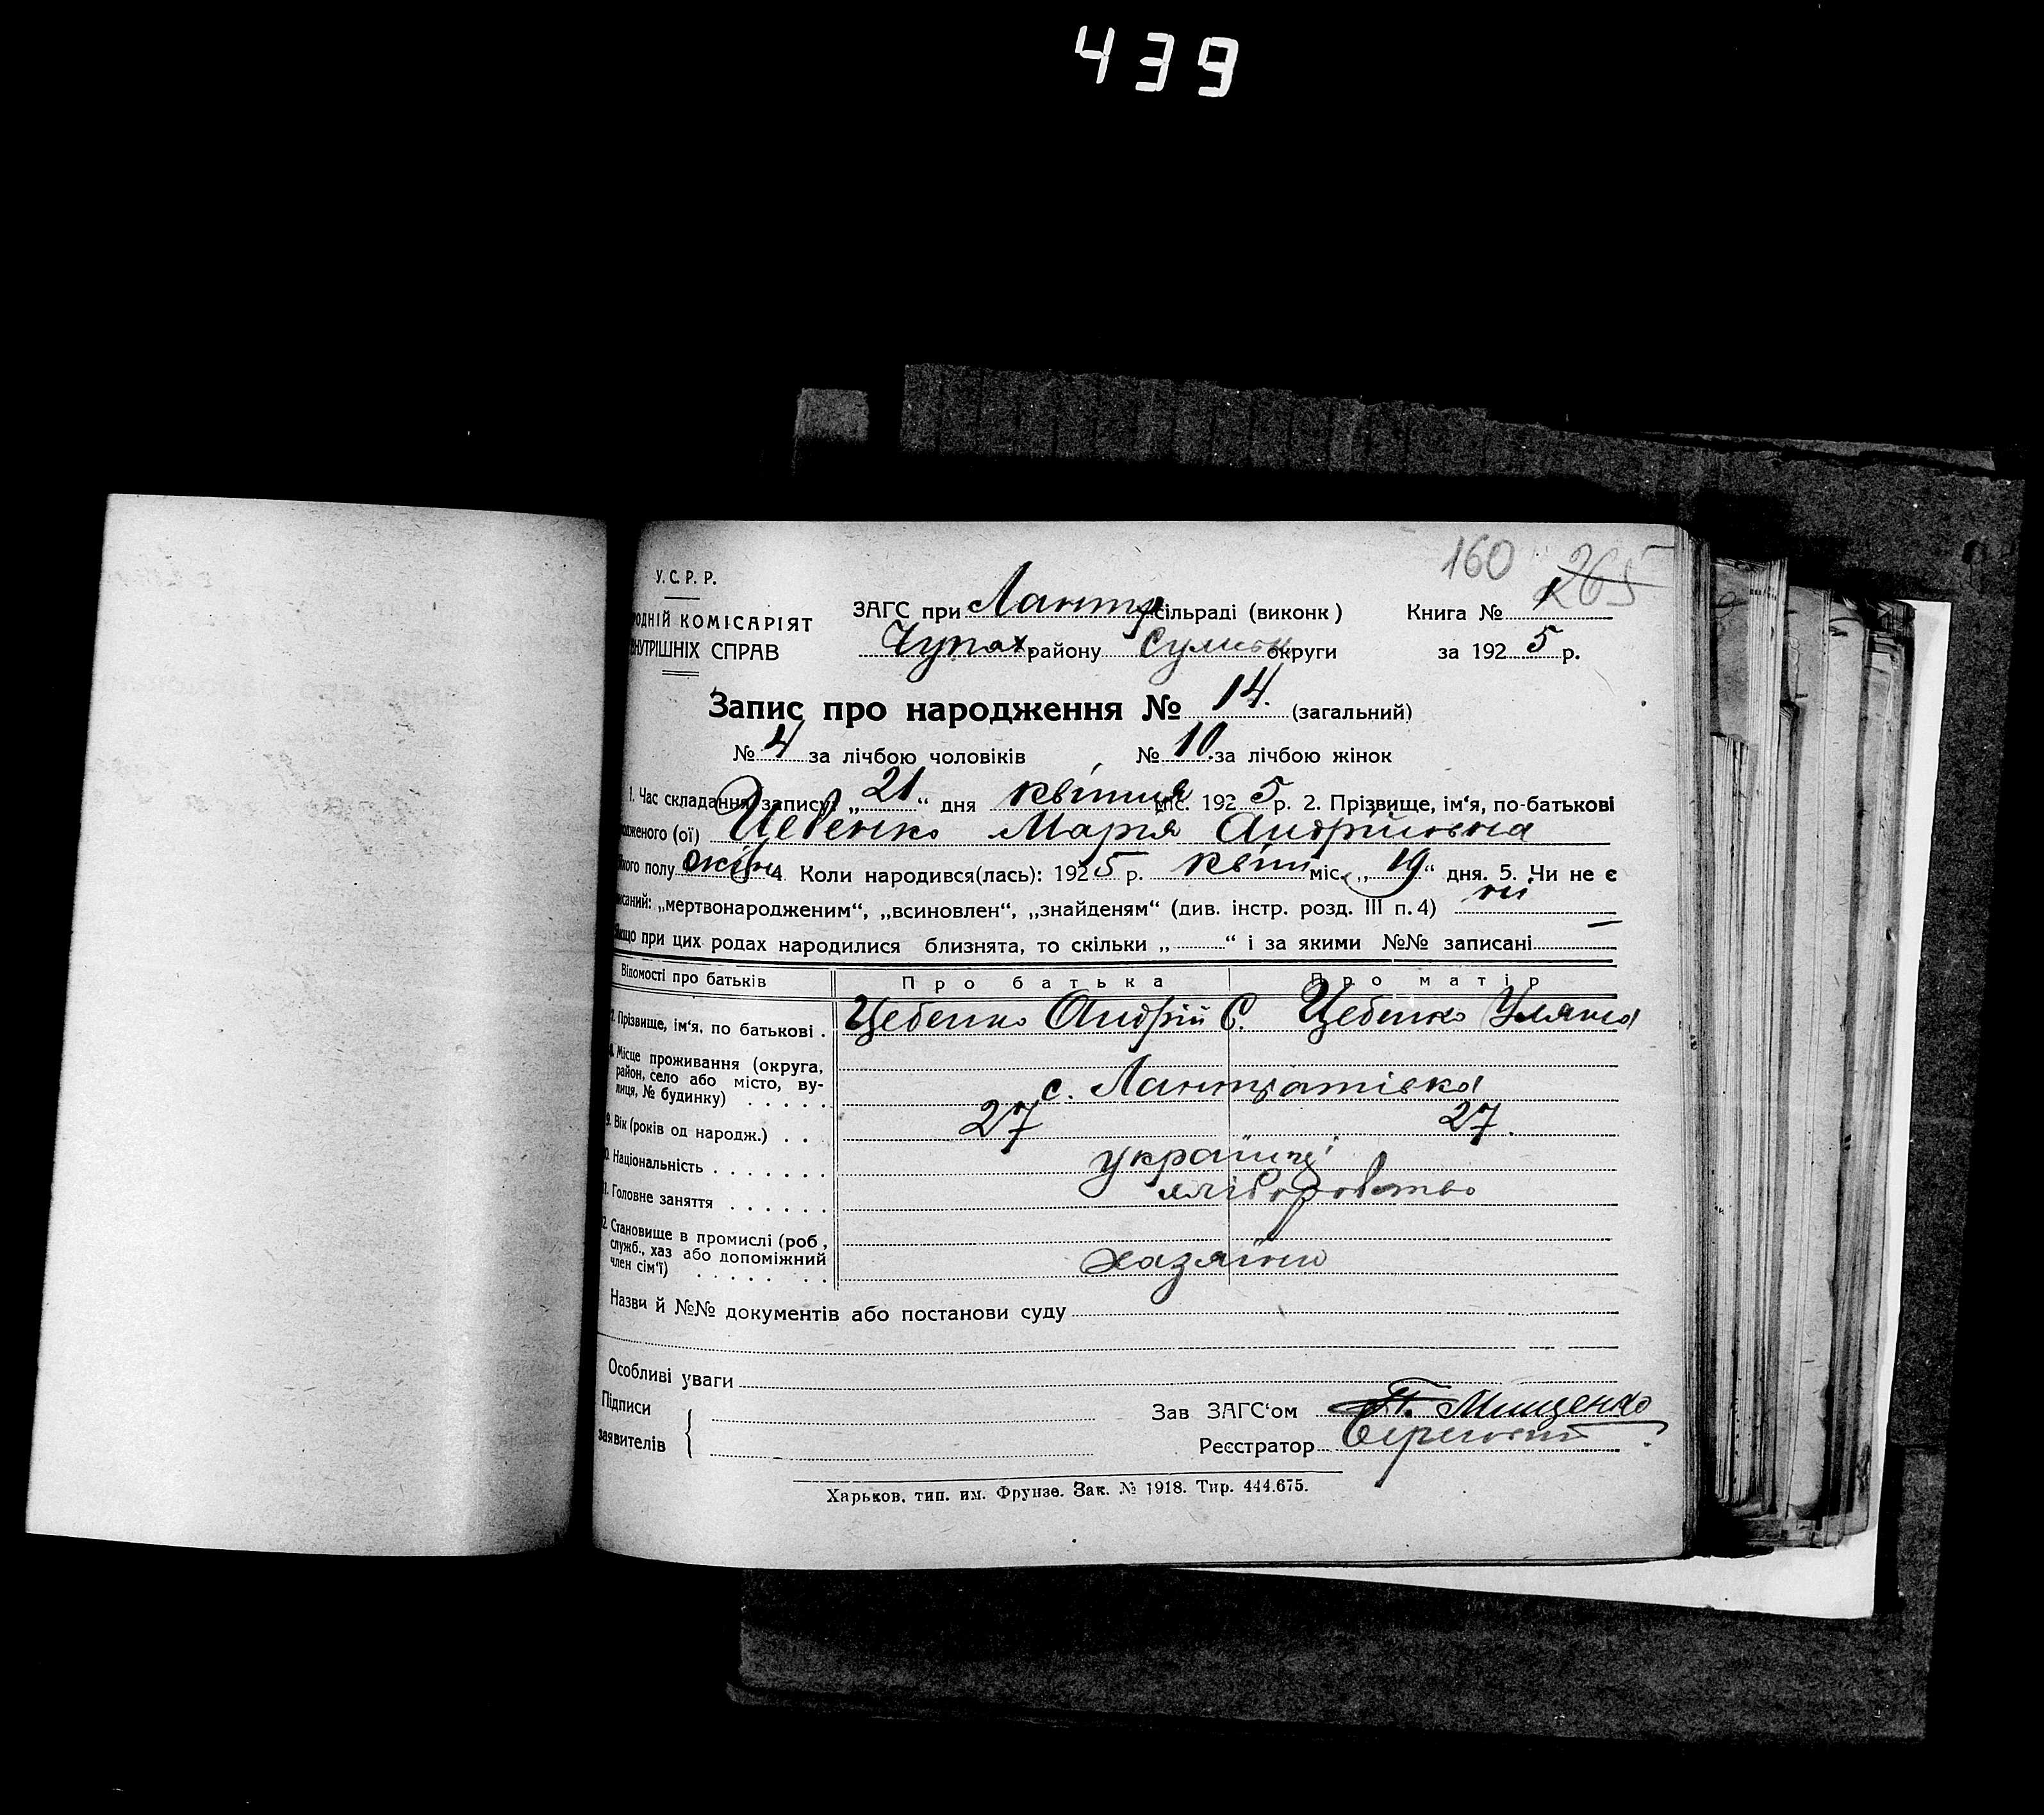 439
160 265
У.С.Р.Р.
ОДНІЙ КОМІСАРІЯТ
ВНУТРІШНІХ СПРАВ
ЗАГС при Лантр сільраді (виконк) Книга № 1
Чупах. району Сумськ округи за 1925 р.
Запис про народження № 14. (загальний)
№ 4 за лічбою чоловіків № 10. за лічбою жінок
1. Час складання запису: „21“ дня квітня міс. 1925 р. 2. Прізвище, ім‘я, по-батькові
одженого (ої) Цебенко Марія Андрійовна
якого полу жін 4. Коли народився(лась): 1925 р. квітн міс. „19“ дня. 5. Чи не є
писаний: „мертвонародженим“, „всиновлен“, „знайденям“ (див. інстр. розд. III п. 4) ні
Якщо при цих родах народилися близнята, то скільки „ “ і за якими №№ записані —
Відомості про батьків Про батька Про матір
Прізвище, ім‘я, по батькові . Цебенко Андрій С. Цебенко Уляна
Місце проживання (округа,
район, село або місто, ву-
лиця, № будинку) . . . . . с. Лантратівка
9. Вік (років од народж.) . . 27 27.
Національність . . . . . . . українці
Головне заняття . . . . . . хліборобство
Становище в промислі (роб,
служб., хаз або допоміжний
член сім‘ї) . . . . . . . хазяїни
Назви й №№ документів або постанови суду
Особливі уваги
Підписи
заявителів
Зав ЗАГС‘ом П. Мищенко
Реєстратор
Харьков, тип. им. Фрунзе. Зак. № 1918. Тир. 444.675.